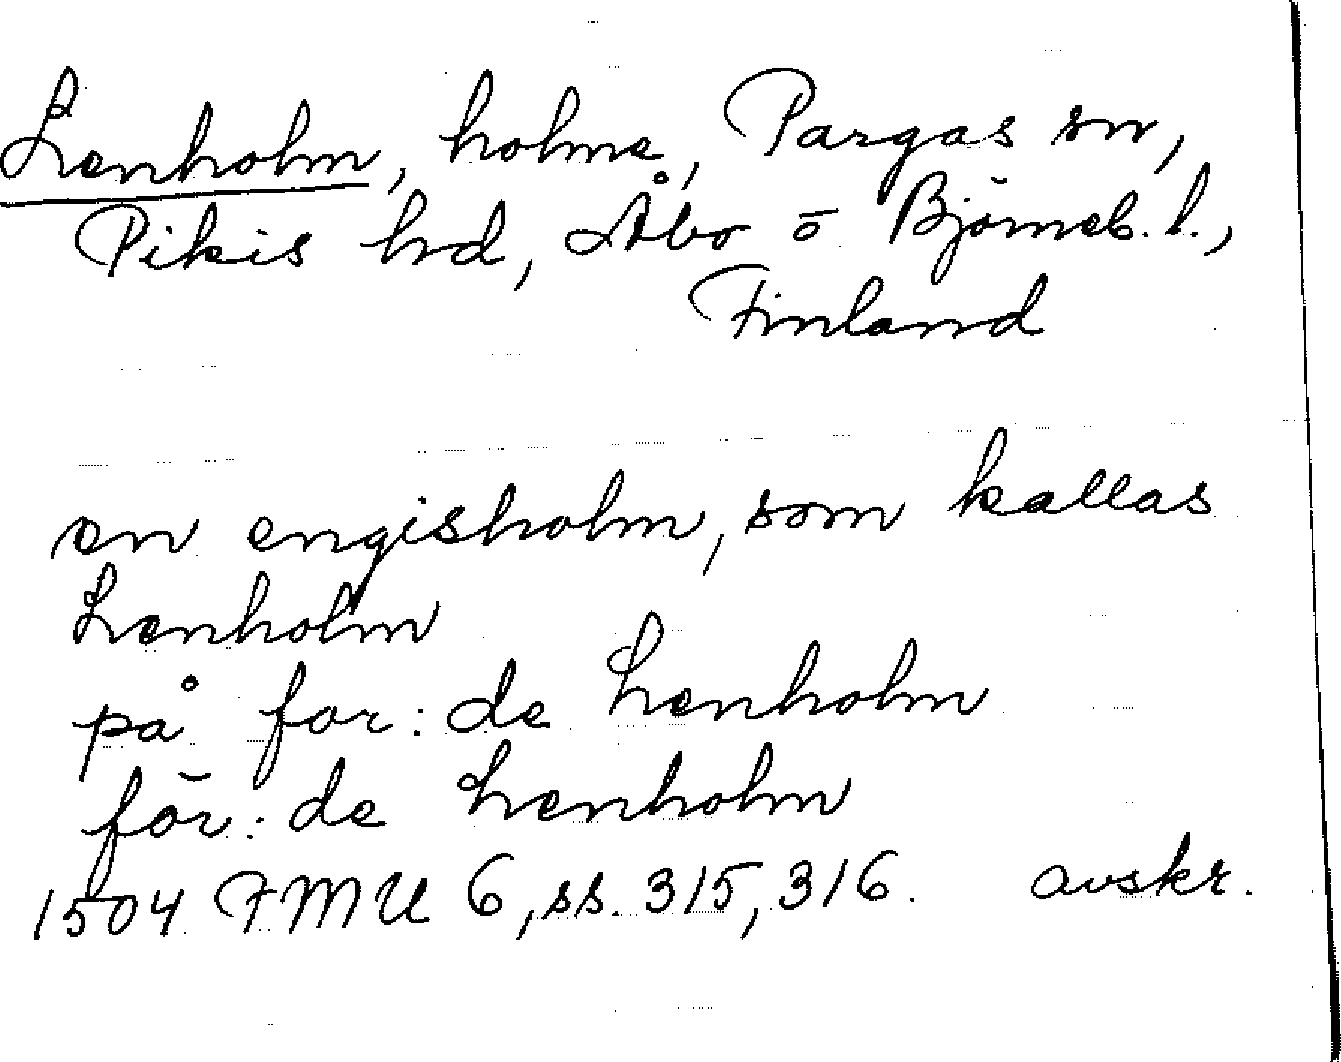 Lenholm, holme, Pargas sn,
Pikis hd, Åbo o Björneb. l.,
Finland
en engisholm, som kallas
Lenholm
på for: de Lenholm
för: de Lenholm
1504 FMU 6, ss. 315, 316. avskr.